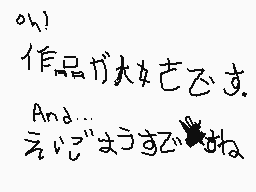 oh!
作品が大好きです.
And...
えいごまうすですね